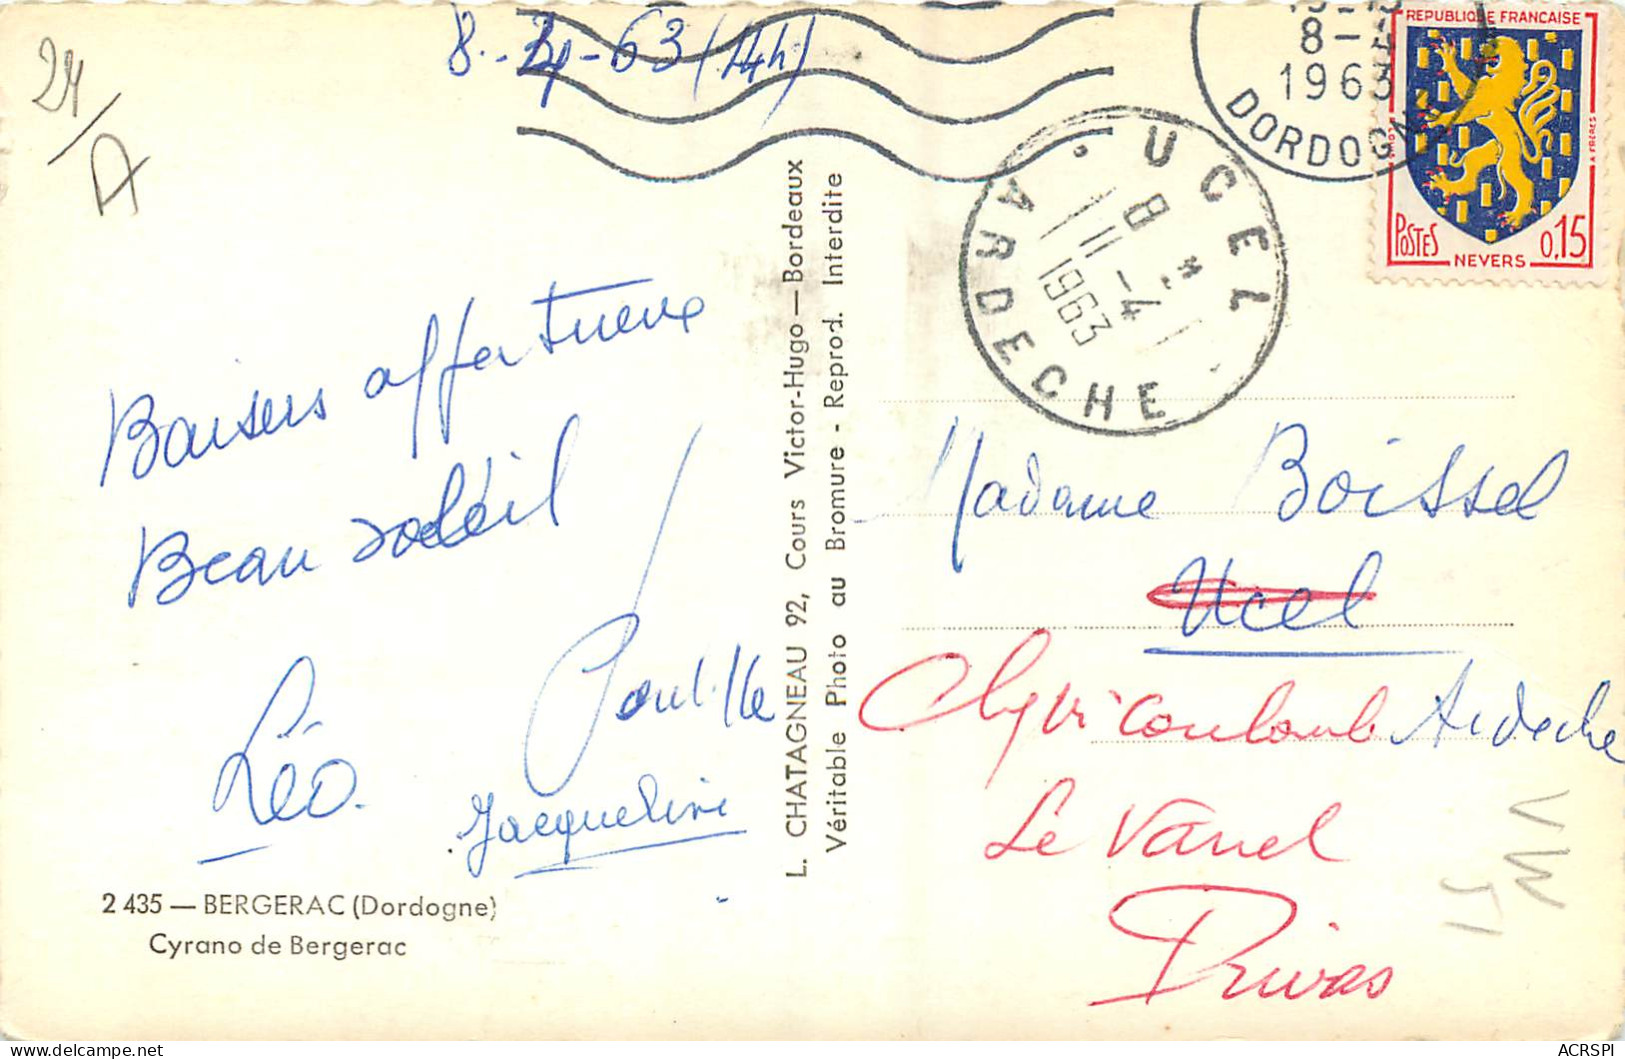 8-4-63 (14h)
24
A
Baisers affectueux
Beau soleil
Léo.
Jacqueline
2 435 — BERGERAC (Dordogne)
Cyrano de Bergerac
L. CHATAGNEAU 92, Cours Victor-Hugo — Bordeaux
Véritable Photo au Bromure - Reprod. Interdite
8-4
1963
DORDOGNE
REPUBLIQUE FRANCAISE
POSTES
0,15
NEVERS
UCEL
8 H
11-4
1963
ARDECHE
Madame Boissel
Ucel
Ardèche
Chez Mr Couloumb
Le Vanel
Privas
ACRSPI